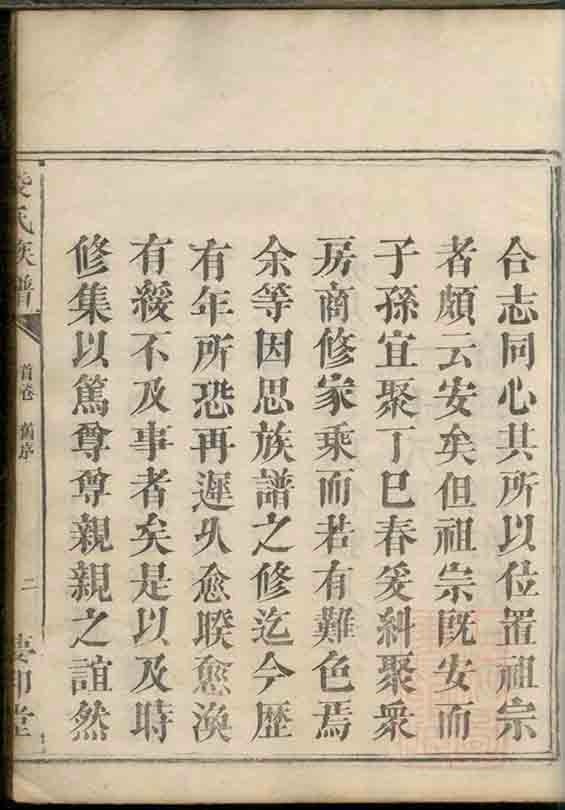 合志同心共所以位置祖宗
者頗云安矣但祖宗既安而
子孫宜聚丁巳春爰糾聚衆
房商修家乘而若有難色焉
余等因思族譜之修迄今歷
有年所恐再遲久愈睽愈渙
有緩不及事者矣是以及時
修集以篤尊尊親親之誼然
氏族譜
首卷 舊序
二
堂